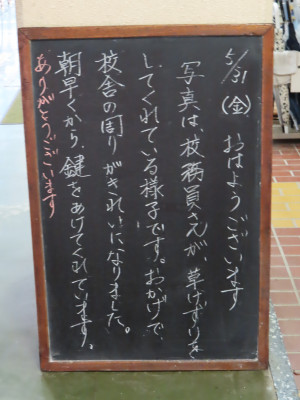 5/31(金) おはようございます
写真は、校務員さんが、草けずりを
してくれている様子です。おかげで、
校舎の周りがきれいになりました。
朝早くから、鍵をあけてくれています。
ありがとうございます